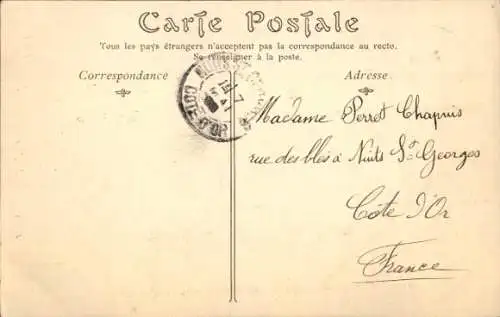 Carte Postale
Tous les pays étrangers n'acceptent pas la correspondance au recto.
Se renseigner à la poste.
Correspondance
Adresse
COTE-D'OR
Madame Perret Chapuis
rue des blés à Nuits St Georges
Côte d'Or
France